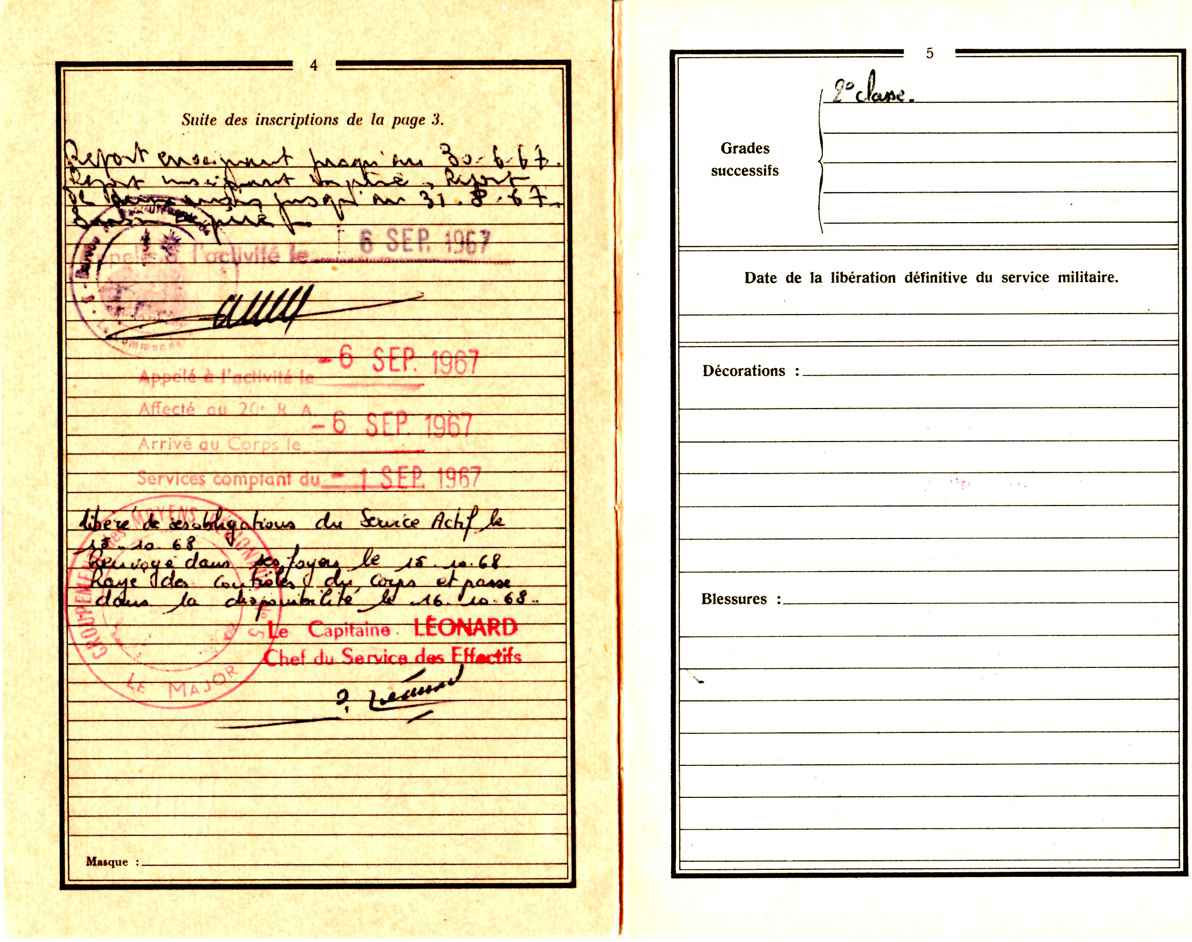 4
Suite des inscriptions de la page 3.
Report enseignant jusqu'au 30-6-67.
Report enseignant Report
jusqu'au 31.8.67.
Bureau
Appelé à l'activité le 6 SEP. 1967
Appelé à l'activité le - 6 SEP. 1967
Affecté au 20e R A
Arrivé au Corps le - 6 SEP. 1967
Services comptant du - 1 SEP. 1967
GROUPEMENT MOYENS
libéré de ses obligations du Service Actif le
15.10.68
Renvoyé dans ses foyers le 15.10.68
Rayé des contrôles du corps et passe
dans la disponibilité le 16.10.68.
LE MAJOR
Le Capitaine LÉONARD
Chef du Service des Effectifs
Masque :
5
Grades
successifs
2e classe.
Date de la libération définitive du service militaire.
Décorations :
Blessures :